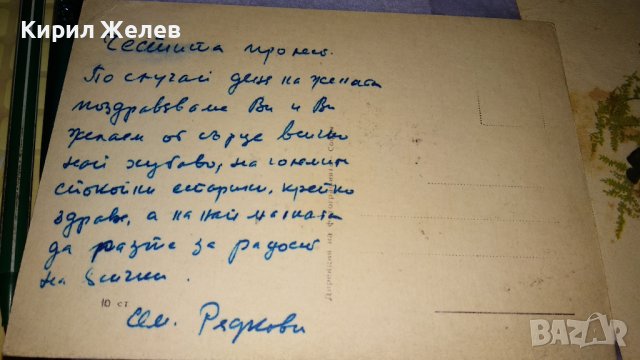 Кирил Желев
Честита пролет.
По случай деня на жената
поздравяваме Ви и Ви
желаем от сърце всичко
най хубаво, на големите
спокойни старини, крепко
здраве, а на най малката
да расте за радост
на всички.
10 ст
Сем. Радкови
Дирекция на фотографията Со
BAZAR